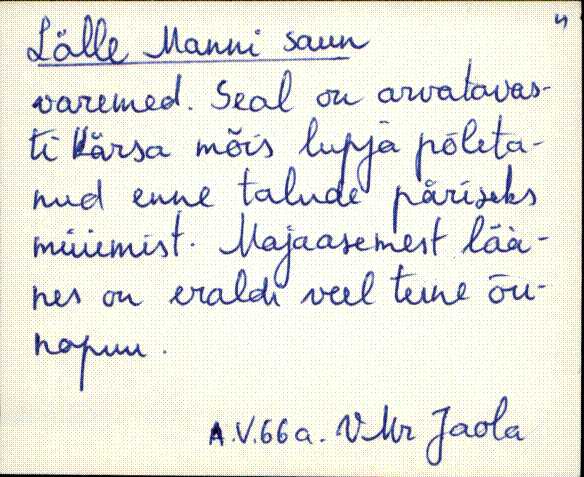 Lälle Manni saun
varemed. Seal on arvatavas-
ti Kärsa mõis lupja põleta-
nud enne talude päriseks
müümist. Majaasemest lää-
nes on eraldi veel teine õu-
napuu.
A.V. 66 a. V. Mr Jaola